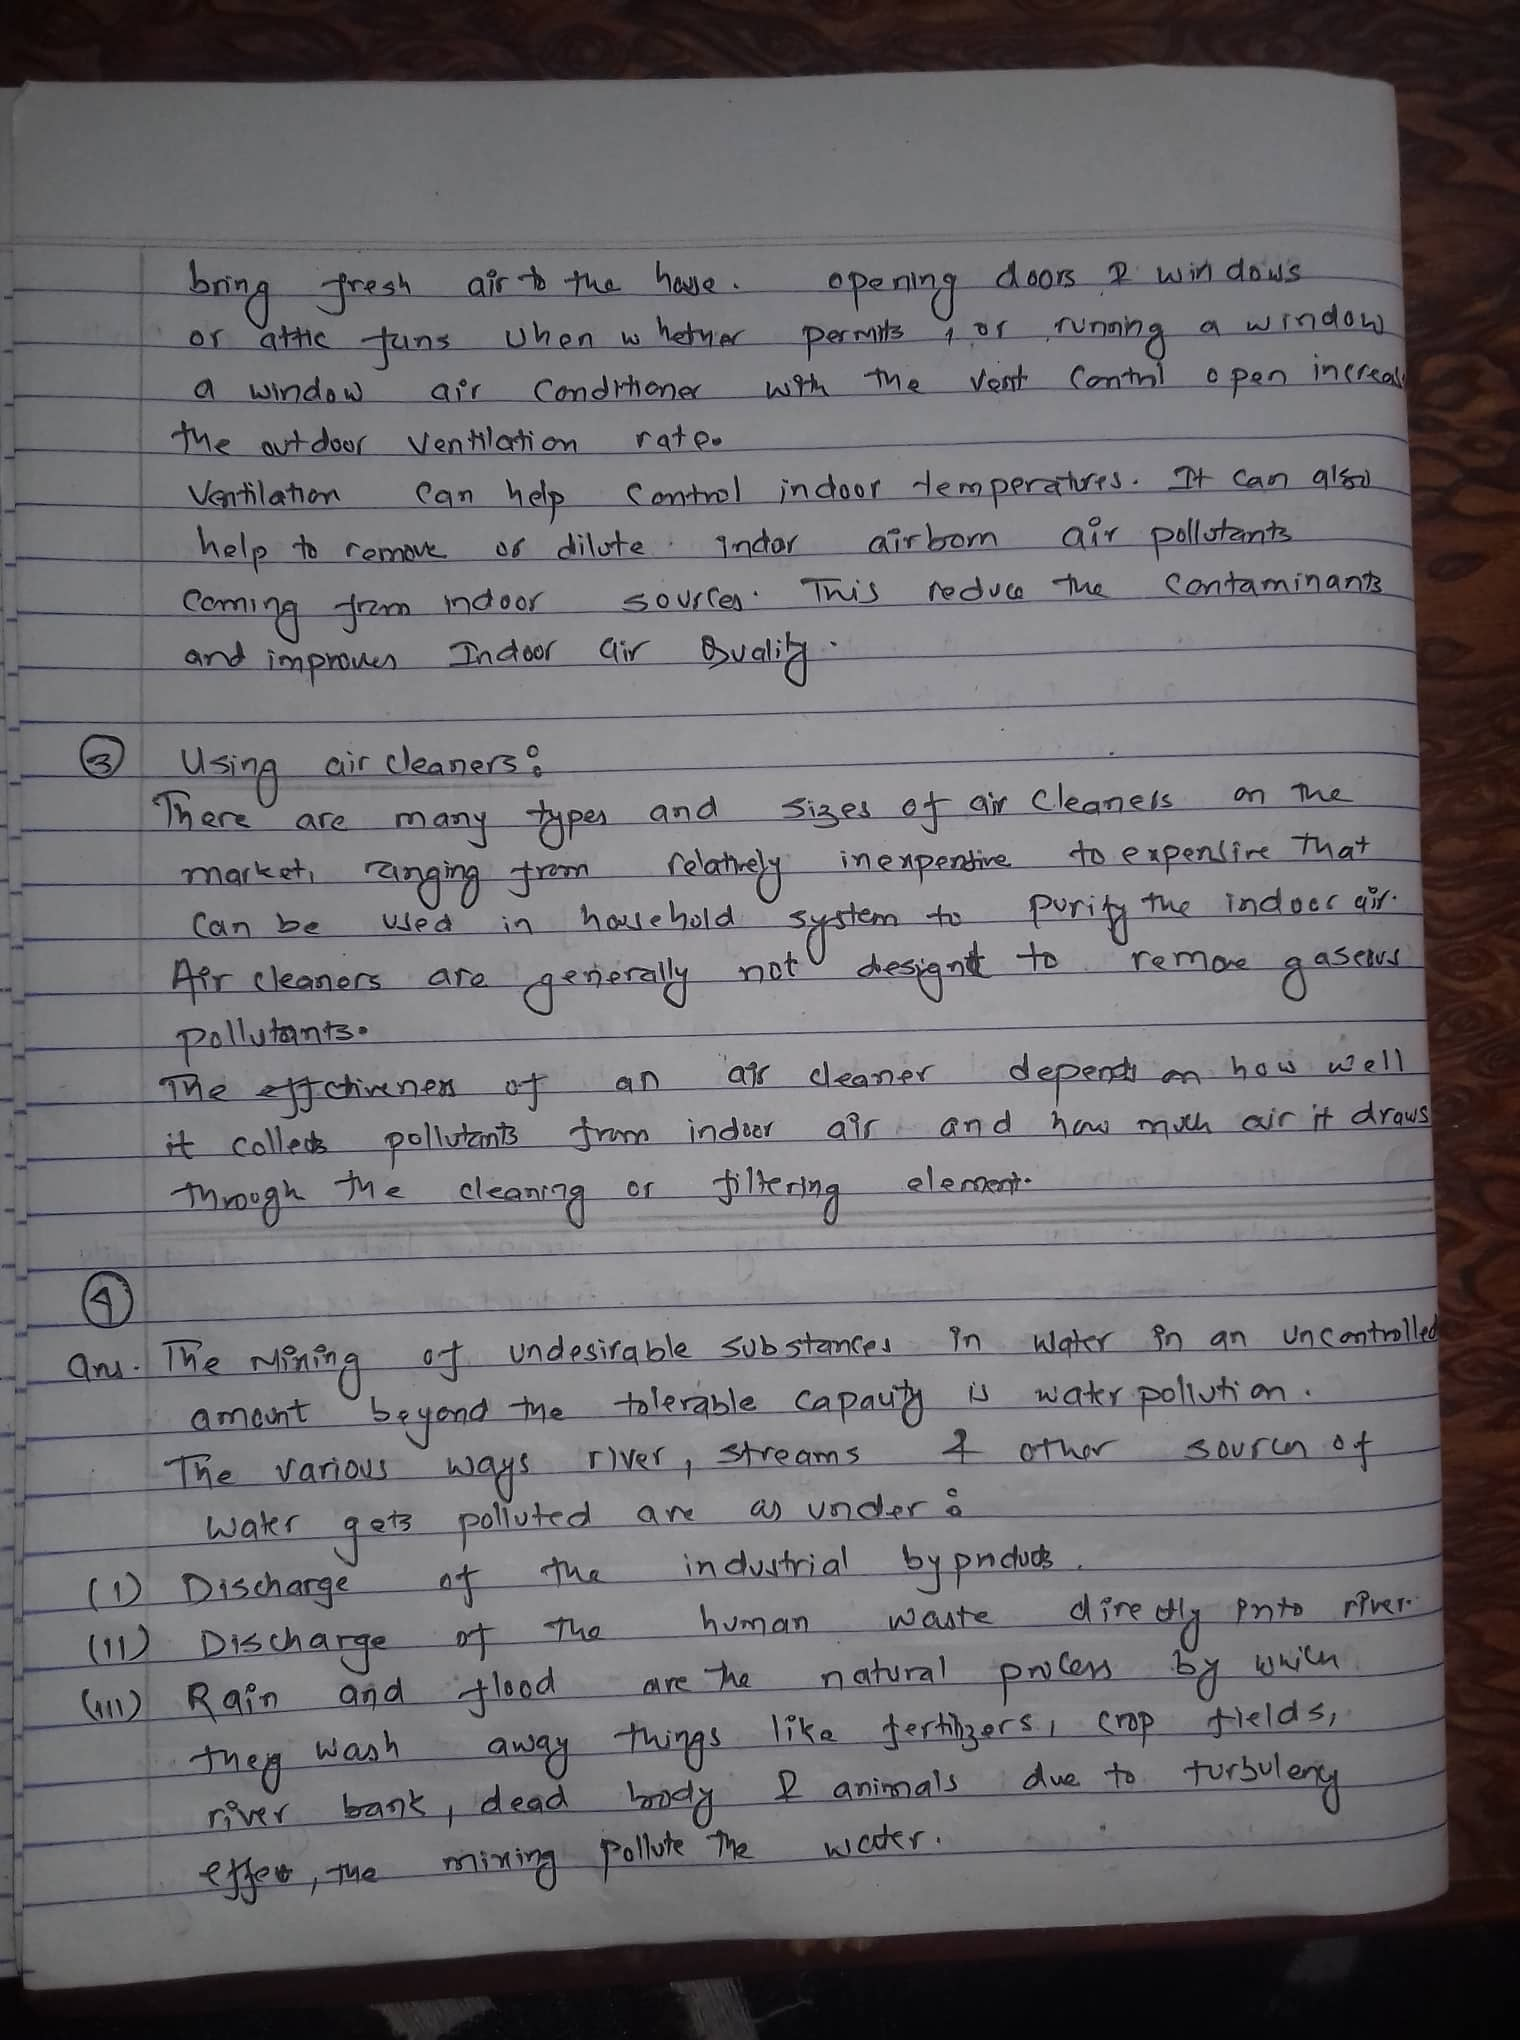 bring fresh air to the house. opening doors & windows
or attic fans when whether permits, or running a window
a window air conditioner with the vent control open increas
the outdoor ventilation rate.
Ventilation can help control indoor temperatures. It can also
help to remove or dilute indor airborn air pollutants
coming from indoor sources. This reduce the contaminants
and improves Indoor air Quality.
③ Using air cleaners:
There are many types and sizes of air cleaners on the
market, ranging from relatively inexpensive to expensive that
can be used in household system to purify the indoor air.
Air cleaners are generally not designt to remove gaseous
pollutants.
The effctiveness of an air cleaner depends on how well
it collects pollutants from indoor air and how much air it draws
through the cleaning or filtering element.
④
Ans. The Mixing of undesirable substances in water in an uncontrolled
amount beyond the tolerable capacity is water pollution.
The various ways river, streams & other sources of
water gets polluted are as under:
(I) Discharge of the industrial byproducts.
(II) Discharge of the human waste directly into river.
(III) Rain and flood are the natural process by which
they wash away things like fertilizers, crop fields,
river bank, dead body & animals due to turbulency
effect, the mixing pollute the water.